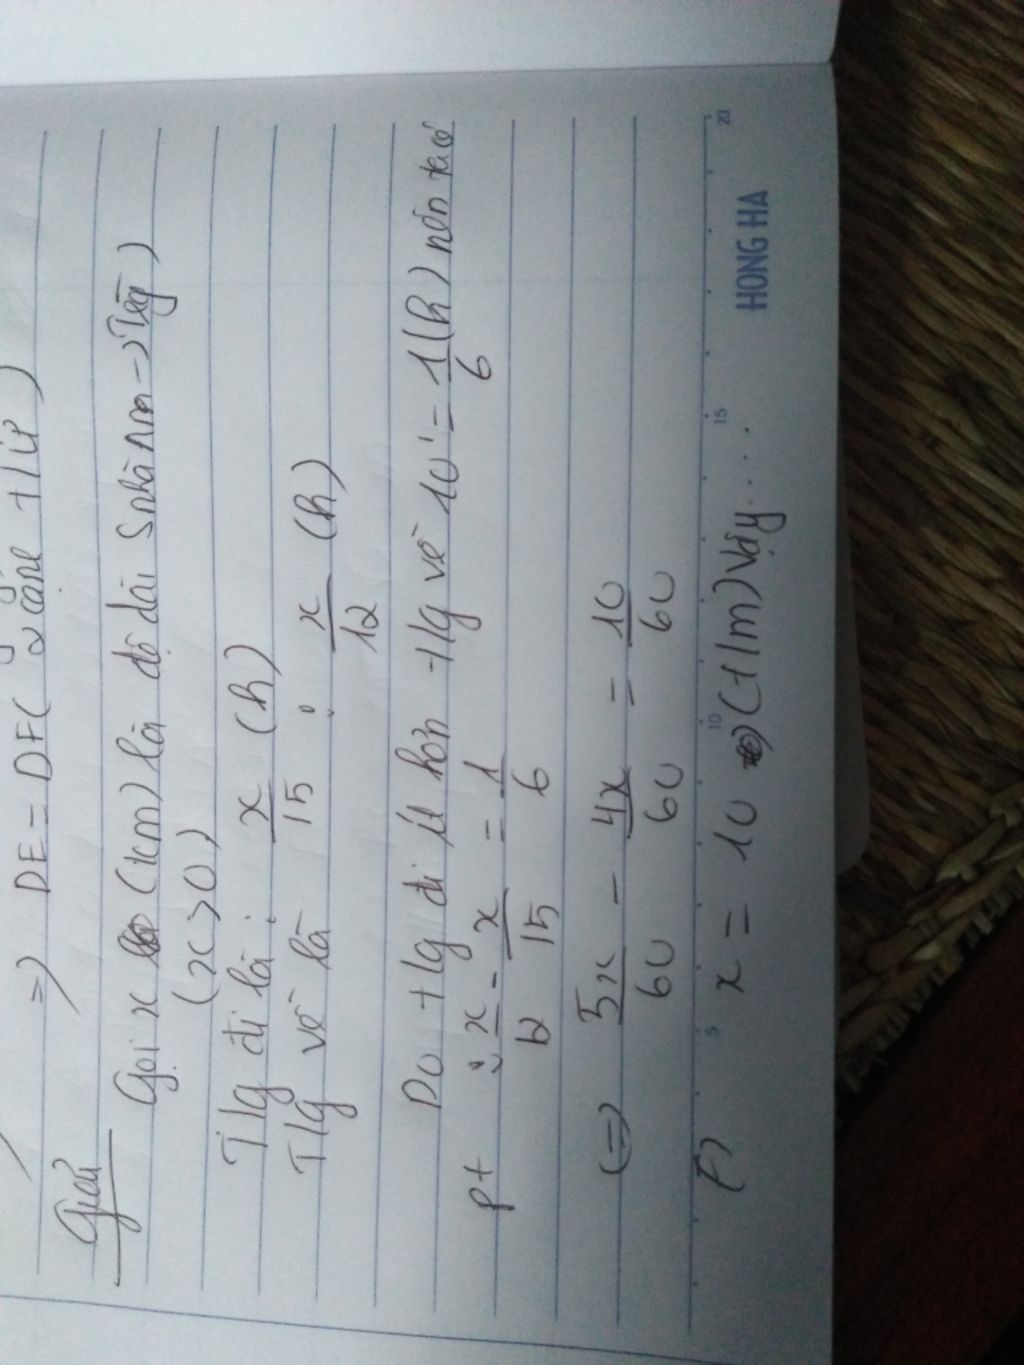 => DE = DF ( 2 cạnh t/ứ )
Giải
Gọi x (km) là độ dài S nhà Nam -> Trg
(x > 0)
T/g đi là : x/15 (h)
T/g về là : x/12 (h)
Do t/g đi ít hơn t/g về 10' = 1/6 (h) nên ta có
pt : x/12 - x/15 = 1/6
<=> 5x/60 - 4x/60 = 10/60
<=> x = 10 (t/m) Vậy....
5 10 15 20
HONG HA